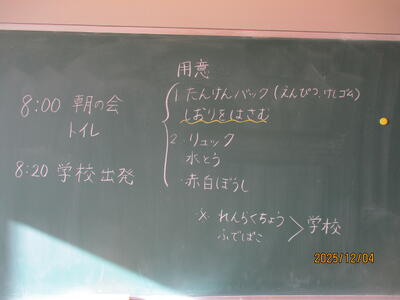 8:00 朝の会
トイレ
8:20 学校出発
用意
1. たんけんバック(えんぴつ、けしゴム)
しおりをはさむ
2. リュック
水とう
・赤白ぼうし
※ れんらくちょう
ふでばこ
> 学校
2025/12/04